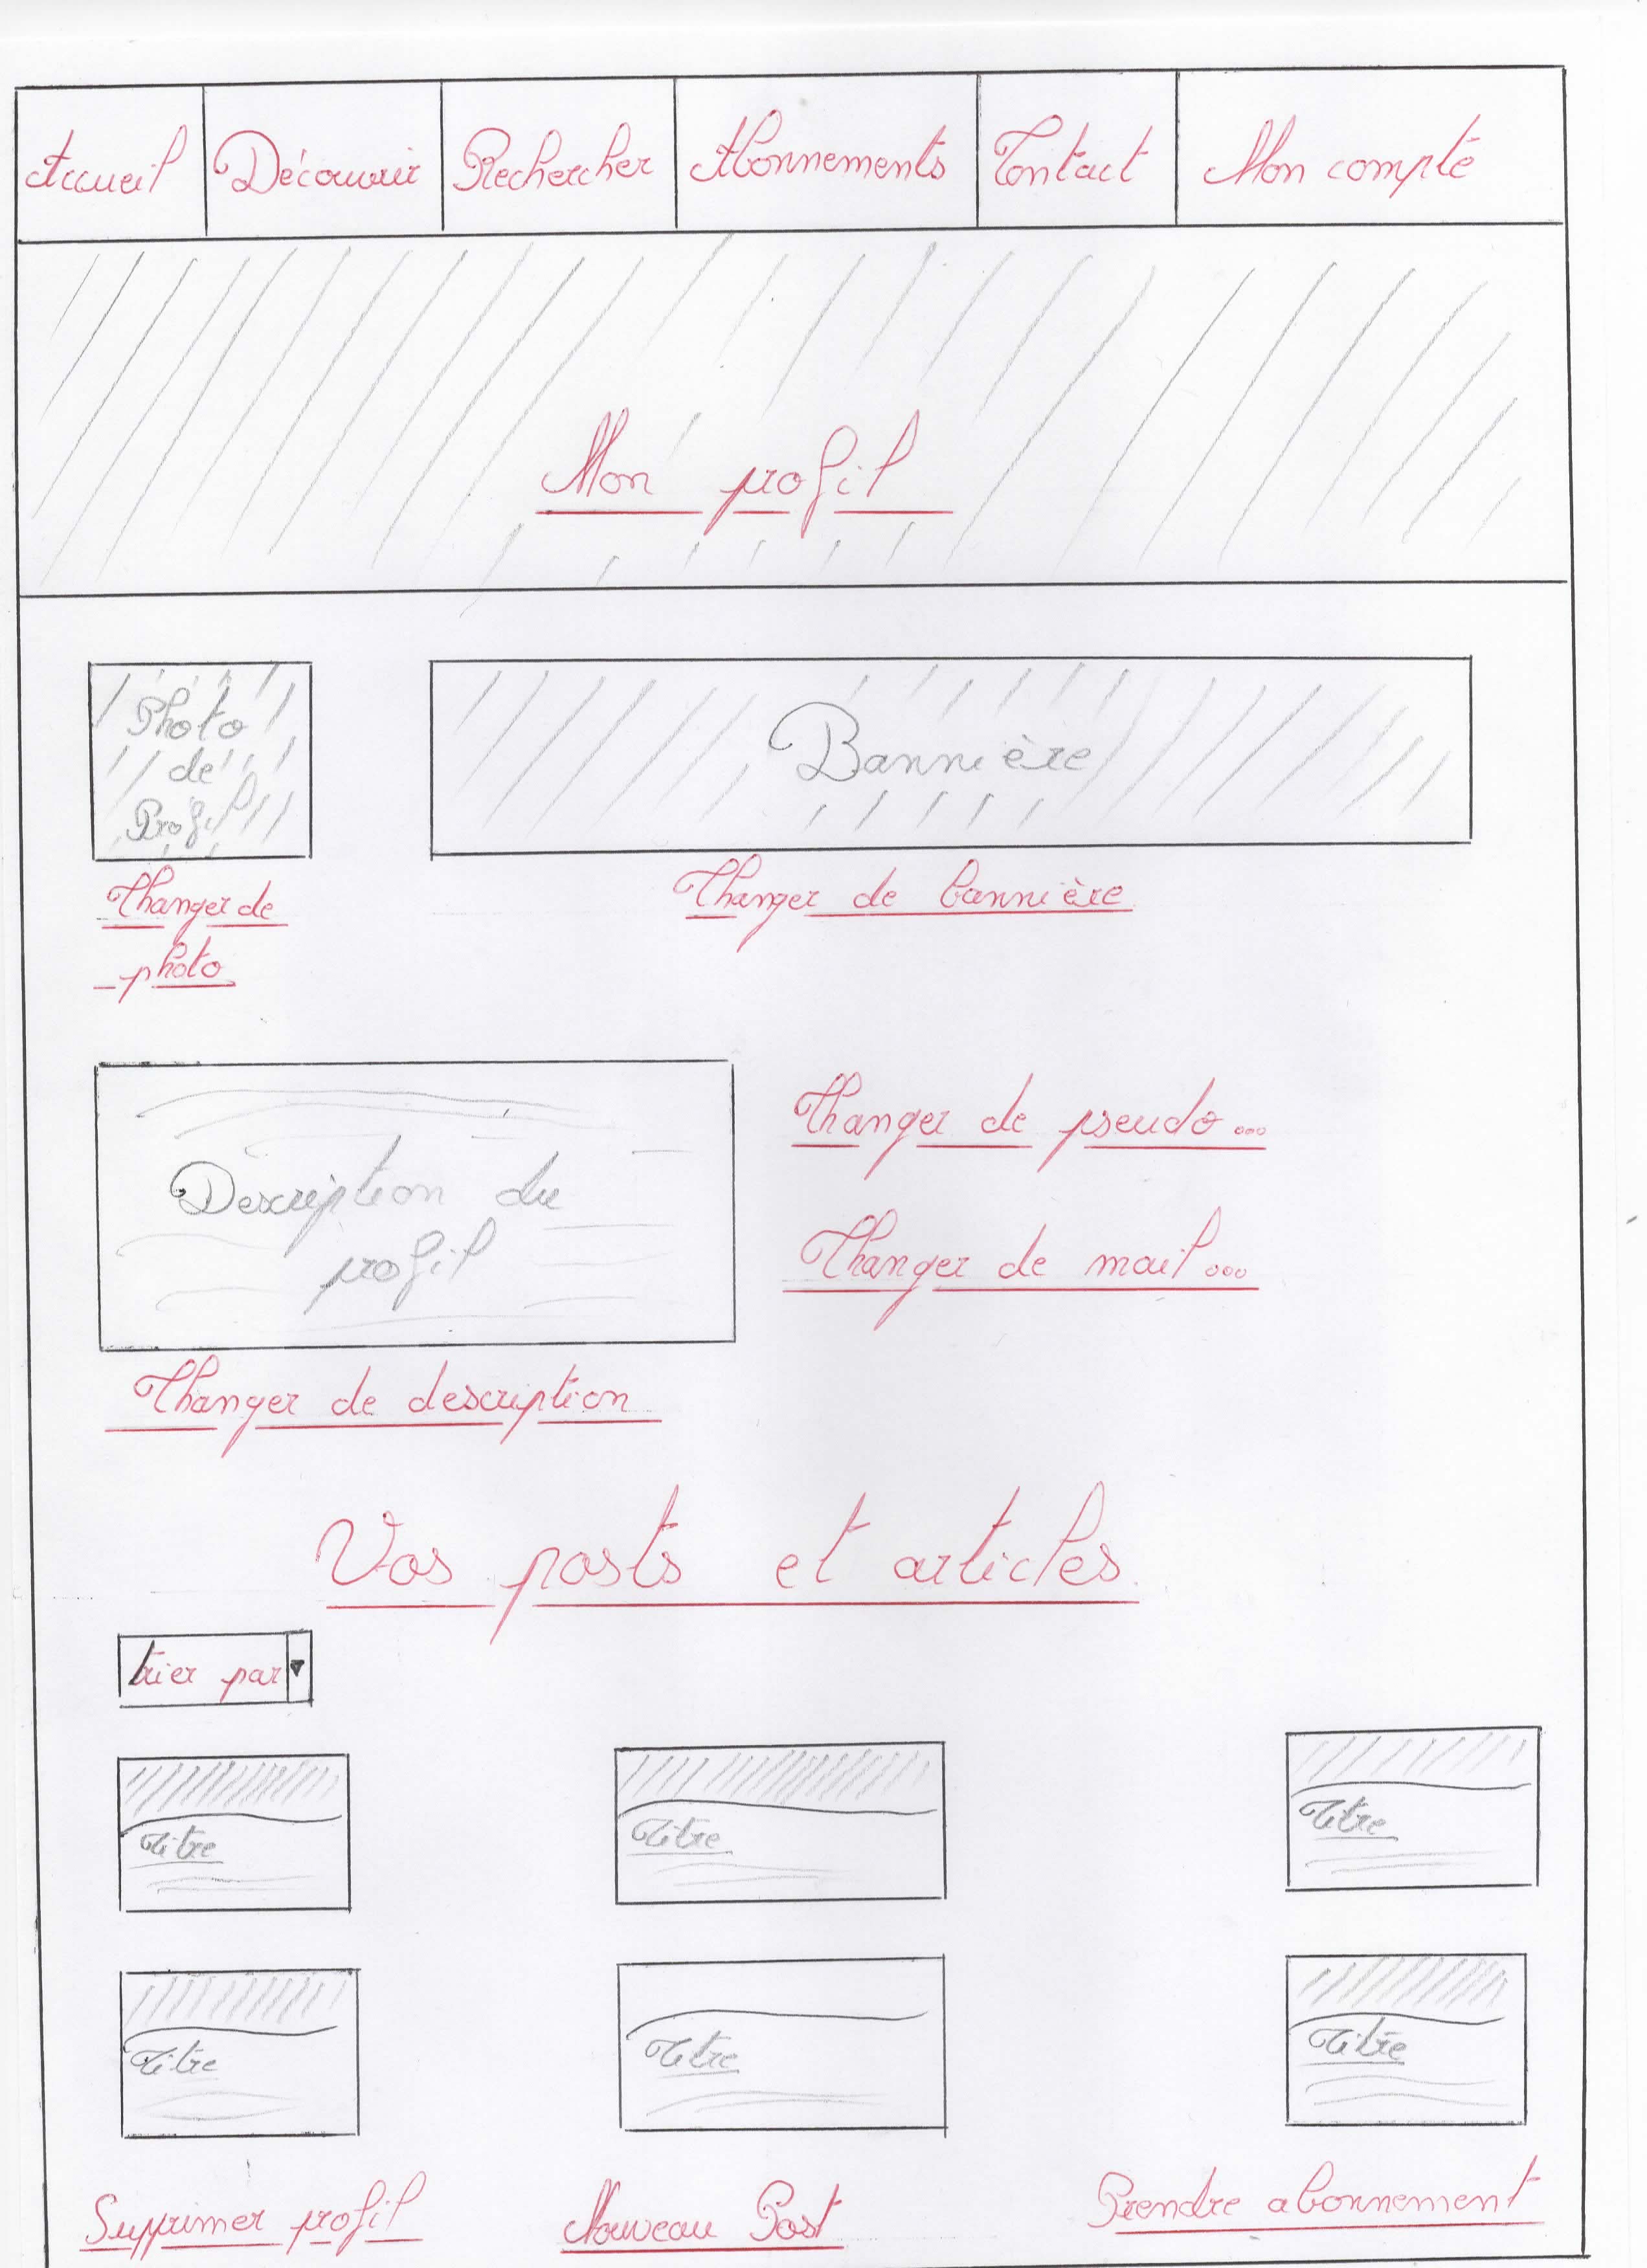 Accueil Découvrir Rechercher Abonnements Contact Mon compte
Mon profil
Photo
de
Profil
Bannière
Changer de
photo
Changer de bannière
Description du
profil
Changer de pseudo...
Changer de mail...
Changer de description
Vos posts et articles
trier par
Titre Titre Titre
Titre Titre Titre
Supprimer profil Nouveau Post Prendre abonnement